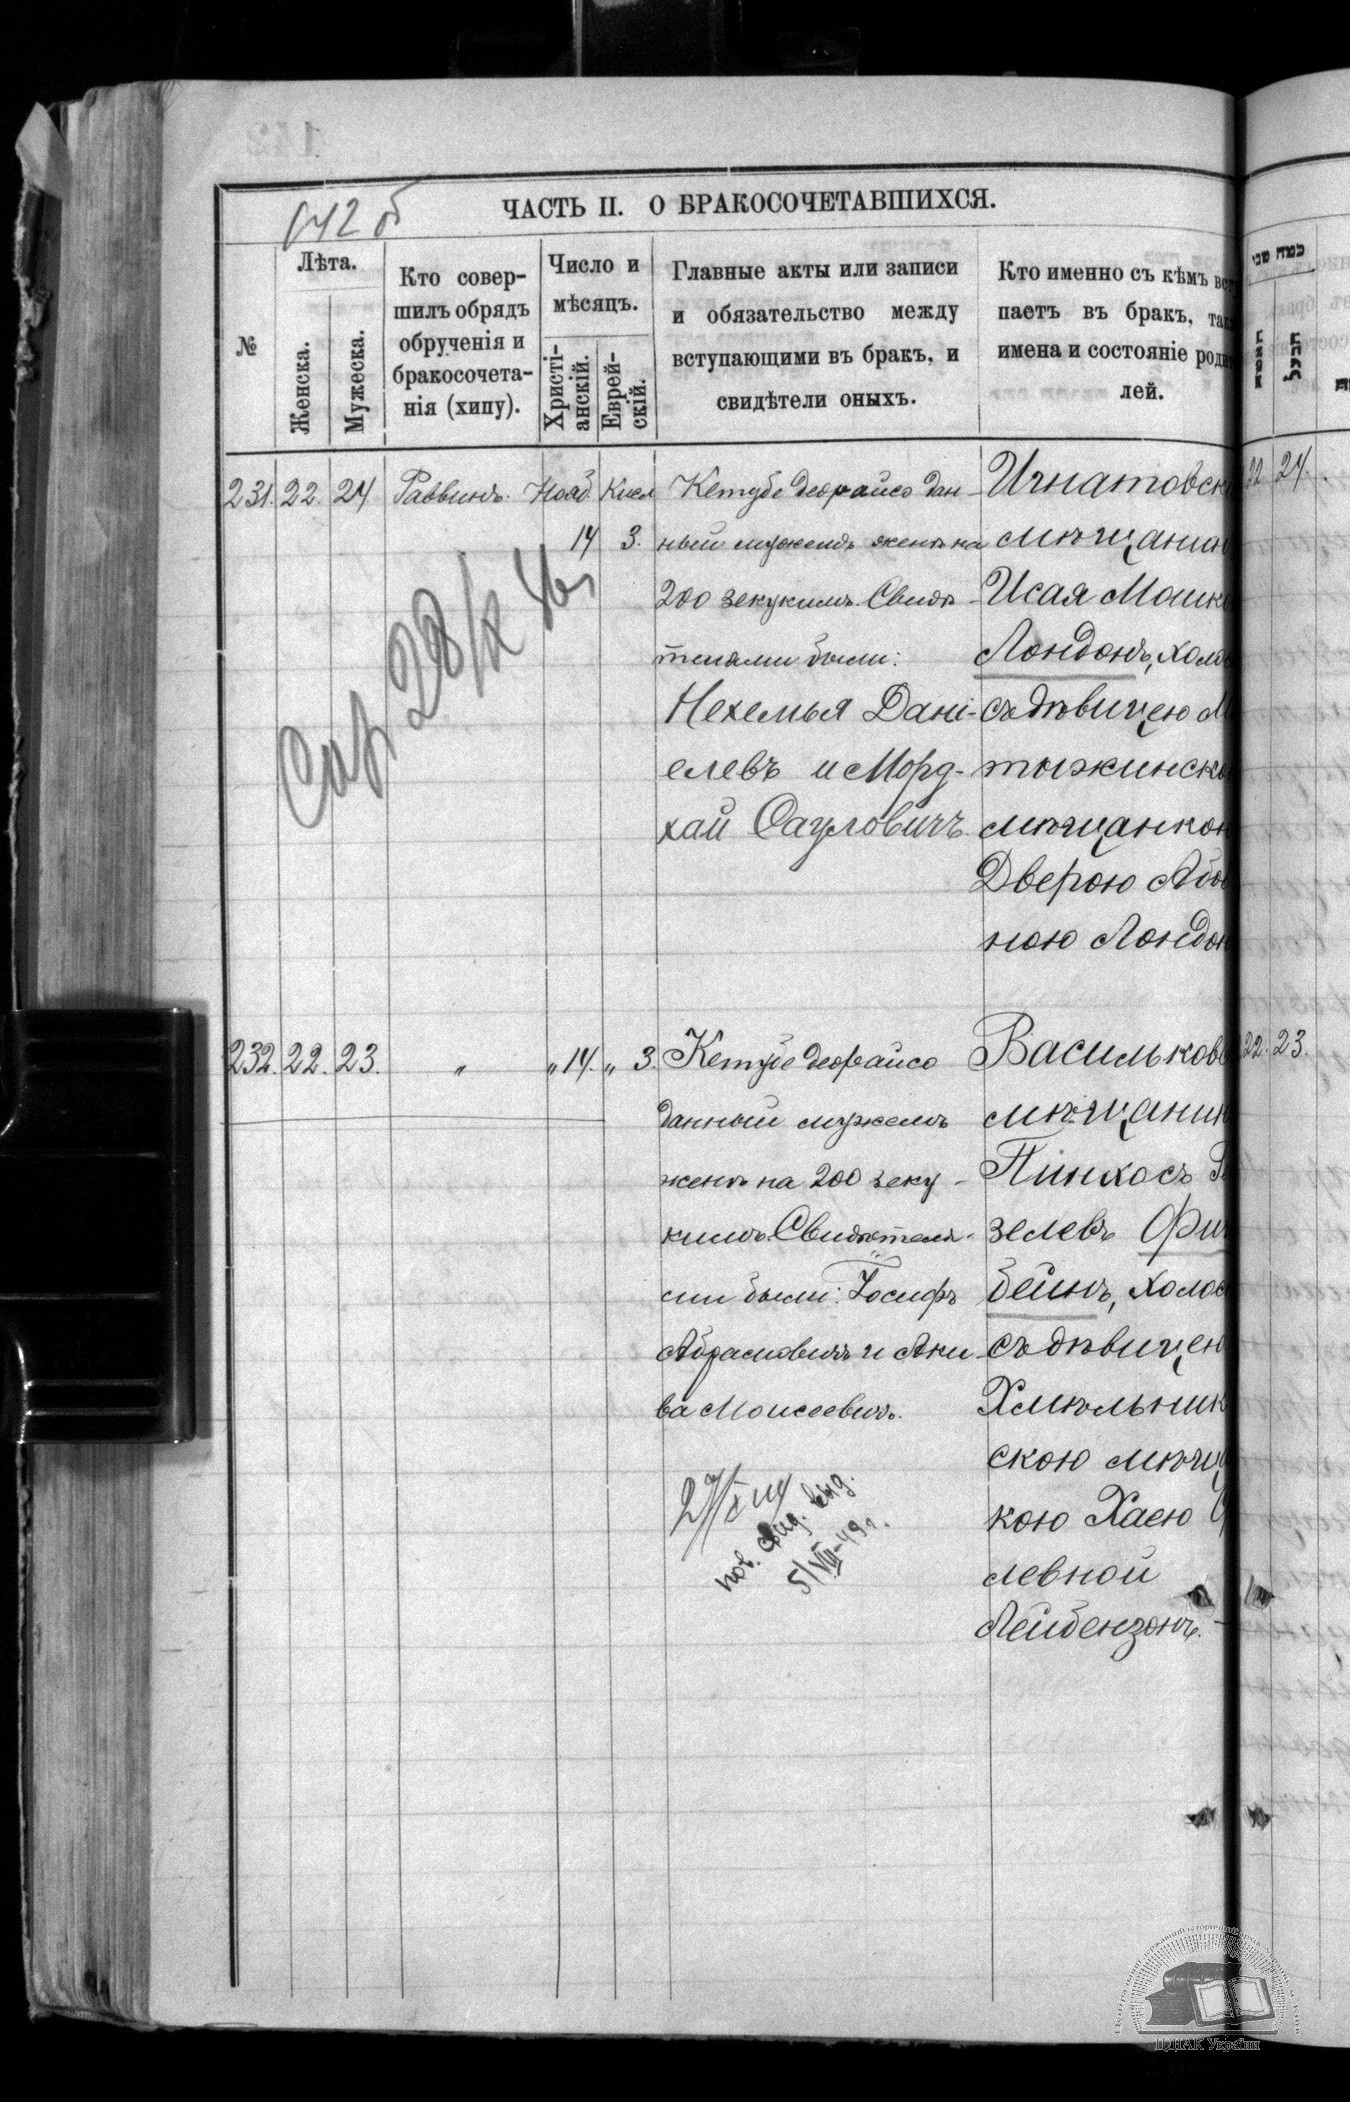 ЧАСТЬ II. О БРАКОСОЧЕТАВШИХСЯ.
142 об
№
Лѣта.
Женска.
Мужеска.
Кто совер-
шилъ обрядъ
обрученія и
бракосочета-
нія (хипу).
Число и
мѣсяцъ.
Христі-
анскій.
Еврей-
скій.
Главные акты или записи
и обязательство между
вступающими въ бракъ, и
свидѣтели оныхъ.
Кто именно съ кѣмъ всту
паетъ въ бракъ, так
имена и состояніе роди
лей.
231. 22. 24 Раввинъ. Нояб. Кисл
14 3.
Кетубе деорайсо дан-
ный мужемъ женѣ на
200 зекукимъ. Свидѣ-
телями были:
Нехемья Дані-
елевъ и Морд-
хай Сауловичъ
Игнатовск
мѣщанин
Исая Мошк
Лондонъ, холос
съ дѣвицею М
тыжинско
мѣщанкою
Дверою Або
ною Лондон
22 24.
232. 22. 23. " " 14. " 3.
Кетубе деорайсо
данный мужемъ
женѣ на 200 зеку-
кимъ. Свидѣтеля-
ми были: Іосифъ
Абрамовичъ и Аки-
ва Моисеевичъ.
Васильков
мѣщанин
Пинхосъ
зелевъ Фи
бейнъ, холос
съ дѣвицею
Хмѣльник
скою мѣщ
кою Хаею
левной
Лейбензонъ.
22. 23.
пов. выд.
5/VIII-49 г.
כמה שני
האשה
הבעל
ЦДІАК України